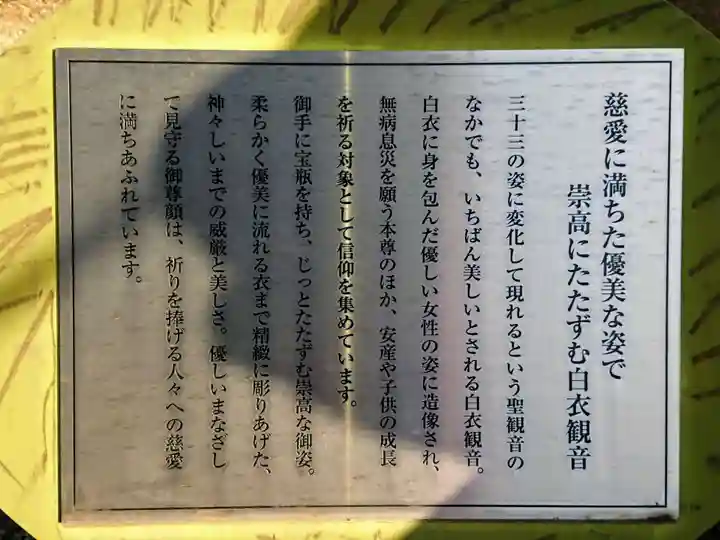 慈愛に満ちた優美な姿で
崇高にたたずむ白衣観音
三十三の姿に変化して現れるという聖観音の
なかでも、いちばん美しいとされる白衣観音。
白衣に身を包んだ優しい女性の姿に造像され、
無病息災を願う本尊のほか、安産や子供の成長
を祈る対象として信仰を集めています。
御手に宝瓶を持ち、じっとたたずむ崇高な御姿。
柔らかく優美に流れる衣まで精緻に彫りあげた、
神々しいまでの威厳と美しさ。優しいまなざし
で見守る御尊顔は、祈りを捧げる人々への慈愛
に満ちあふれています。